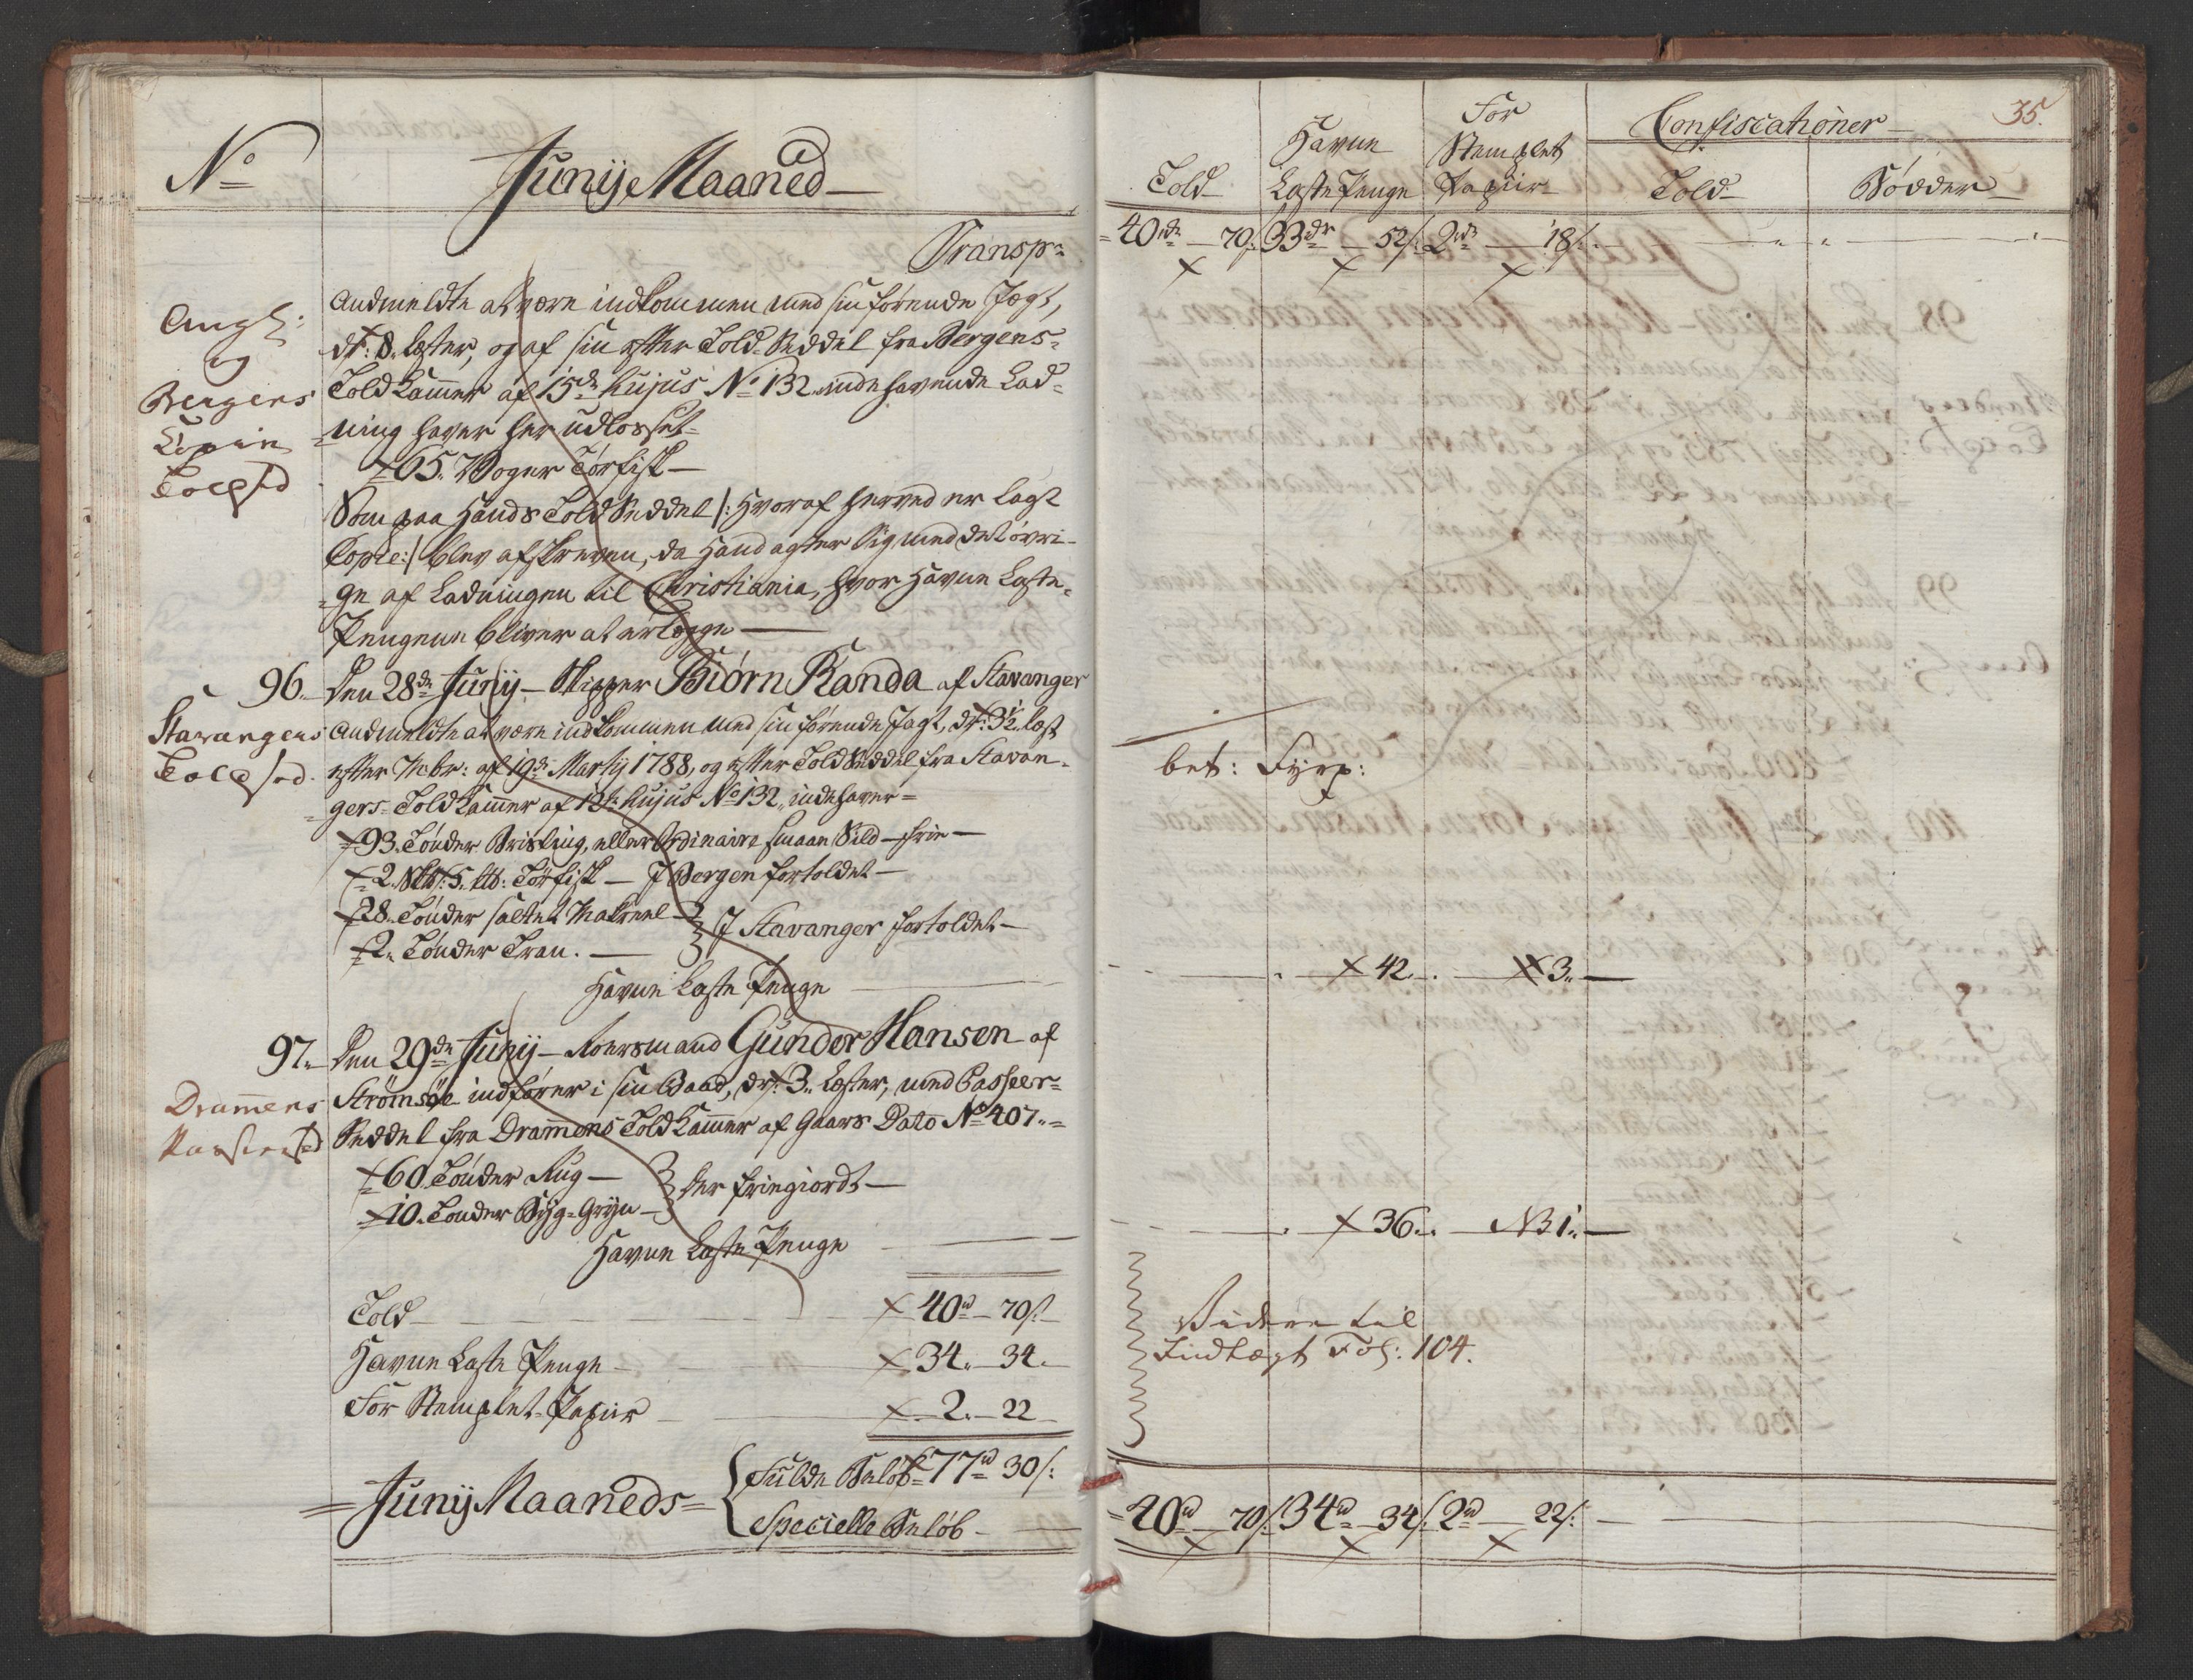 No
Junij Maaned
Transp:
Angl:
og
Bergens
Copie
Toldsd
Andmeldte at være indkommen med sin førende Jagt,
dr: 8. Læster, og af sin efter Told-Seddel fra Bergens-
Told Kammer af 15de hujus No 132. indehavende Lad-
ning haver her udlosset
65. Woger Tørfisk
Som paa Hands Told Seddel /: hvoraf herved er lagt
Copie :/ blev afskreven, da Hand agter Sig med det øvri-
ge af Ladningen til Christiania, hvor Havne Laste-
Pengene bliver at erlegge
96. Den 28de Junij Skipper Biørn Randa af Stavanger
Stavangers
Toldsed.
andmeldte at være indkommen med sin førende Jagt, dr: 3½ Læst
efter Mbr: af 19de Martij 1788, og efter Told Seddel fra Stavan-
gers Told Kammer af 12te hujus No 132, indehaver
93. Tønder Brisling, eller Ordinaire smaae Sild frie
2. Sk℔: 5. L℔: Tørfisk J Bergen fortoldet
28. Tønder saltet Makreel
2. Tønder Tran.
J Stavanger fortoldet
Havne Laste Penge
97. Den 29de Junij Roersmand Gunder Hansen af
Drammens
Passersed
Strømsøe indfører i sin Baad, dr: 3. Læster, med Passeer-
Seddel fra Drammens Told Kammer af Gaars Dato No 407.
60. Tønder Rug
10. Tønder Byg-Gryn
der friegiordt
Havne Laste Penge
Told 40rd 70s
Havne Laste Penge 34. 34.
For Stemplet Papiir 2. 22
Junij Maaneds
Fulde Beløb 77rd 30s:
Specielle Beløb
35.
Told
Havne Laste Penge
For Stemplet Papiir
Confiscationer
Told
Bøder
40rd 70s: 33rd 52s: 2rd 18s:
bet: Fyrp:
42. 3.
36. 1.
Videre til
Indtægt Fol: 104.
40rd 70s: 34rd 34s: 2rd 22s: